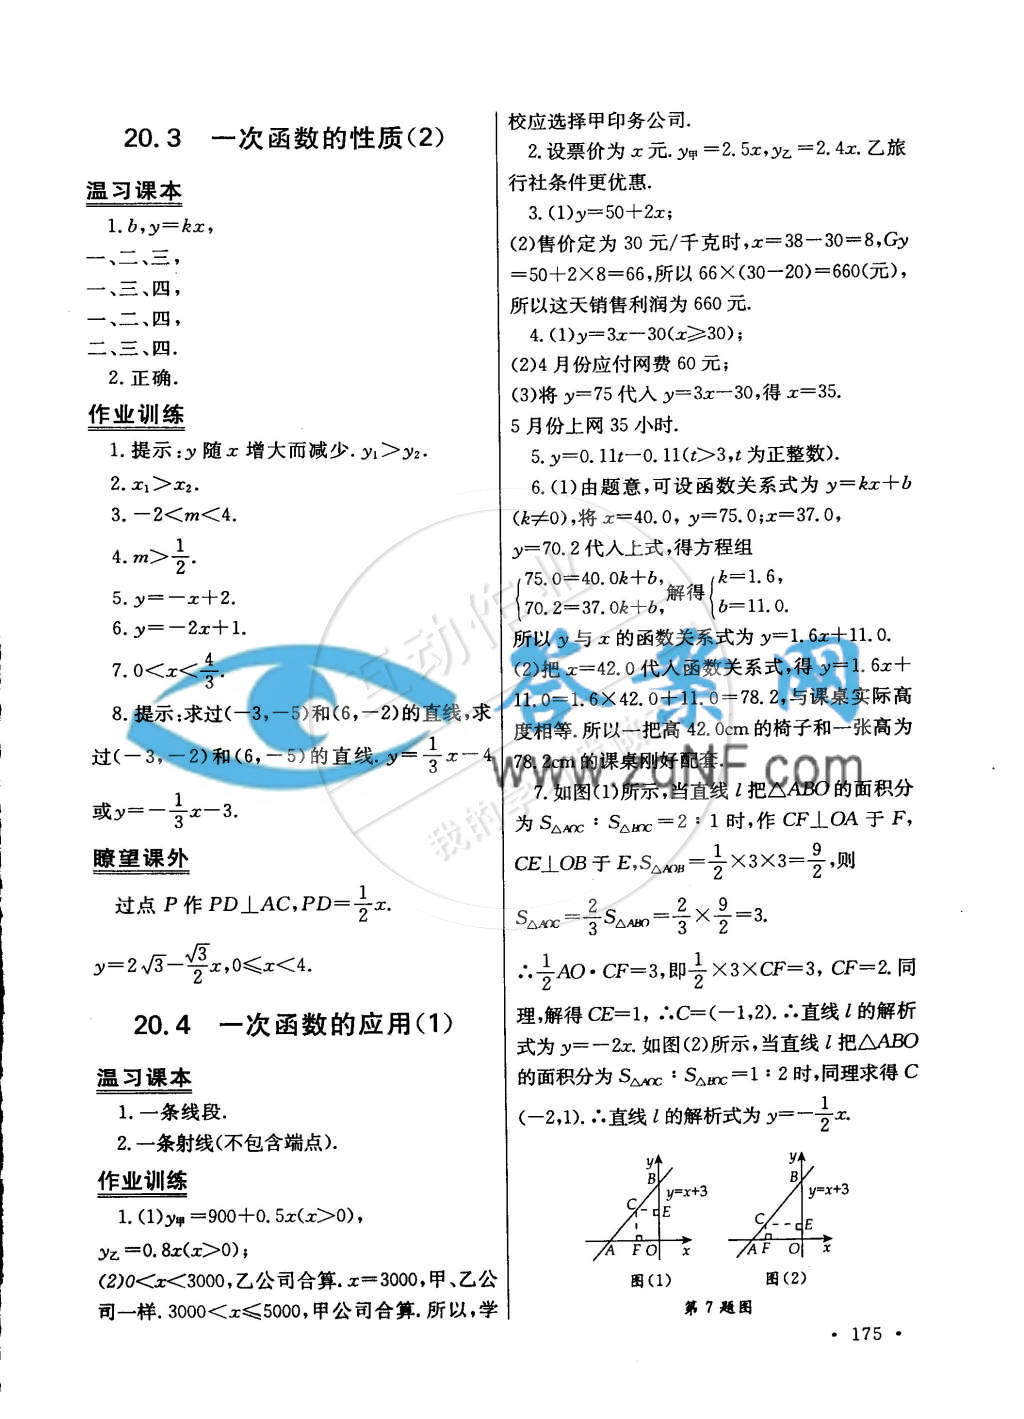 20.3 一次函数的性质(2)
温习课本
1.b,y=kx,
一、二、三,
一、三、四,
一、二、四,
二、三、四.
2.正确.
作业训练
1.提示:y随x增大而减少.y₁>y₂.
2.x₁>x₂.
3.-2<m<4.
4.m>1/2.
5.y=-x+2.
6.y=-2x+1.
7.0<x<4/3.
8.提示:求过(-3,-5)和(6,-2)的直线,求
过(-3,-2)和(6,-5)的直线.y=1/3x-4
或y=-1/3x-3.
瞭望课外
过点P作PD⊥AC,PD=1/2x.
y=2√3-√3/2x,0≤x<4.
20.4 一次函数的应用(1)
温习课本
1.一条线段.
2.一条射线(不包含端点).
作业训练
1.(1)y甲=900+0.5x(x>0),
y乙=0.8x(x>0);
(2)0<x<3000,乙公司合算.x=3000,甲、乙公
司一样.3000<x≤5000,甲公司合算.所以,学
校应选择甲印务公司.
2.设票价为x元.y甲=2.5x,y乙=2.4x.乙旅
行社条件更优惠.
3.(1)y=50+2x;
(2)售价定为30元/千克时,x=38-30=8,Gy
=50+2×8=66,所以66×(30-20)=660(元),
所以这天销售利润为660元.
4.(1)y=3x-30(x≥30);
(2)4月份应付网费60元;
(3)将y=75代入y=3x-30,得x=35.
5月份上网35小时.
5.y=0.11t-0.11(t>3,t为正整数).
6.(1)由题意,可设函数关系式为y=kx+b
(k≠0),将x=40.0,y=75.0;x=37.0,
y=70.2代入上式,得方程组
{75.0=40.0k+b, 70.2=37.0k+b, 解得{k=1.6, b=11.0.
所以y与x的函数关系式为y=1.6x+11.0.
(2)把x=42.0代入函数关系式,得y=1.6x+
11.0=1.6×42.0+11.0=78.2,与课桌实际高
度相等.所以一把高42.0cm的椅子和一张高为
78.2cm的课桌刚好配套.
7.如图(1)所示,当直线l把△ABO的面积分
为S△AOC:S△BOC=2:1时,作CF⊥OA于F,
CE⊥OB于E,S△AOB=1/2×3×3=9/2,则
S△AOC=2/3S△ABO=2/3×9/2=3.
∴1/2AO·CF=3,即1/2×3×CF=3,CF=2.同
理,解得CE=1,∴C=(-1,2).∴直线l的解析
式为y=-2x.如图(2)所示,当直线l把△ABO
的面积分为S△AOC:S△BOC=1:2时,同理求得C
(-2,1).∴直线l的解析式为y=-1/2x.
y B y=x+3 C E A F O x
图(1)
y B y=x+3 C E A F O x
图(2)
第7题图
·175·
答案网
www.zqNF.com
互动作业